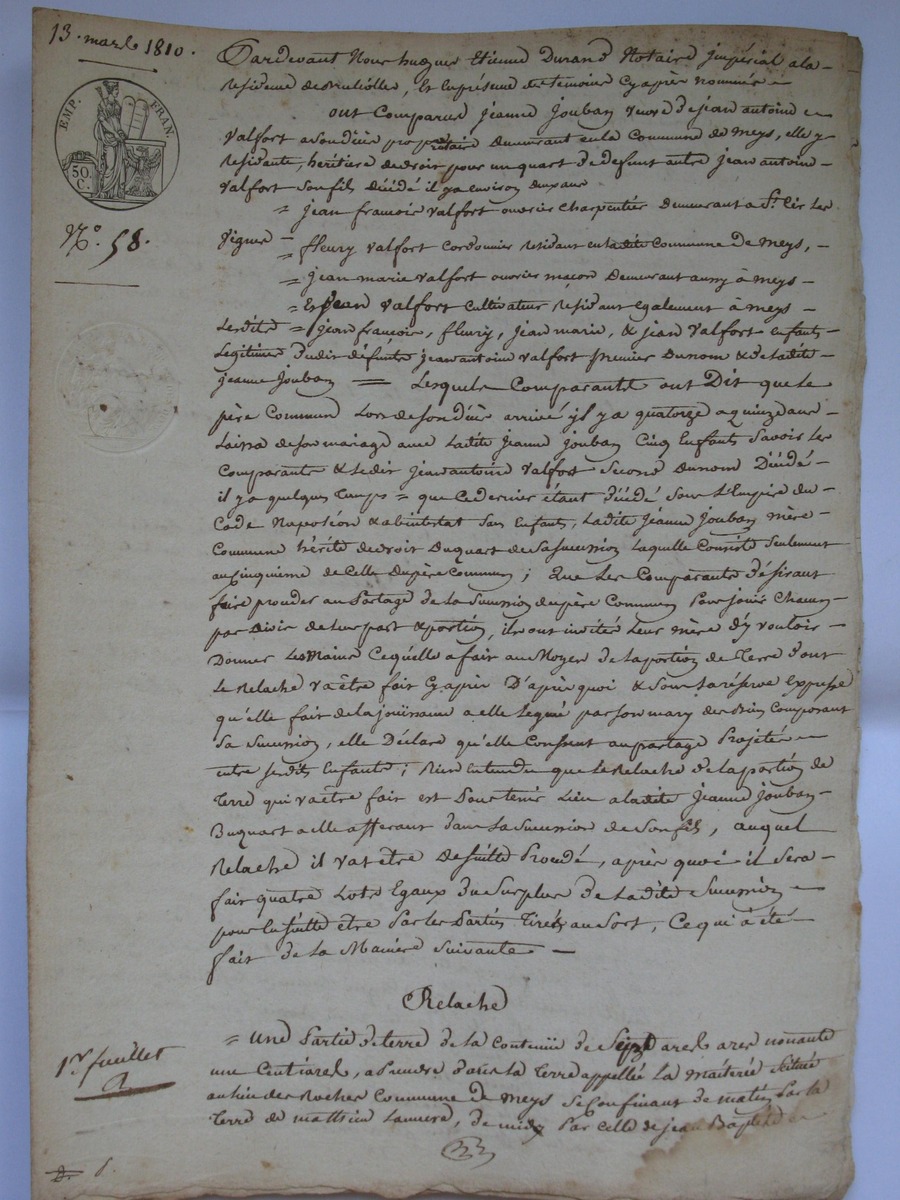 13. mars 1810.
EMP. FRAN.
50. C.
N.º 58.
Pardevant Nous hugues Etienne Durand Notaire Impérial a la
Residence de , Et En présence des temoins Cyaprès nommés
ont Comparus jeanne Jouban veuve de jean antoine
Valfort a son décès propriétaire demeurant en la Commune de Meys, elle y
residante, heritiere de droit pour un quart de defunt autre jean antoine
Valfort son fils décédé il y a environ deux ans
= jean francois Valfort ouvrier charpentier demeurant a St. Cir les
Vignes
= fleury Valfort Cordonnier residant en ladite Commune de Meys,
= jean marie Valfort ouvrier maçon demeurant aussy à Meys
= Et jean Valfort Cultivateur residant également à Meys
Lesdits = jean francois, fleury, jean marie, & jean Valfort enfants
Legitimes dudit défunt jean antoine Valfort premier du nom & de ladite
jeanne Jouban = Lesquels Comparants ont Dit que le
père Commun Lors de son décès arrivé il y a quatorze a quinze ans
Laissa de son mariage avec Ladite jeanne Jouban Cinq Enfants Savoir les
Comparants & Ledit jean antoine Valfort Second du nom Décédé
il y a quelques temps = que ce dernier étant décédé sous L'Empire du
Code Napoléon & abintestat sans Enfants, Ladite Jeanne Jouban mère
Commune hérite de droit du quart de sa succession Laquelle Consiste seulement
au Cinquieme de Celle du père Commun ; Que les Comparants désirant
faire proceder au Partage de la Succession du père Commun Pour jouir Chacun
par divis de leur part & portion, ils ont invités leur mère d'y vouloir
Donner les Mains Ce qu'elle a fait au Moyen de la portion de Terre dont
le Relache va être fait Cyaprès D'après quoi & Sous la réserve expresse
qu'elle fait de la jouissance a elle leguée par son mary des Biens Composant
Sa Succession, elle Déclare qu'elle Consent au partage Projeté
entre sesdits Enfants ; Bien entendu que le Relache de la portion de
Terre qui va être fait est Pour tenir Lieu a ladite Jeanne Jouban
Du quart a elle afferant dans la Succession de son fils, auquel
Relache il va être de suite Procédé, après quoi il sera
fait quatre Lots Egaux du Surplus de ladite Succession
pour Ensuite être Par les Parties Tirés au Sort, Ce qui a été
fait de la Maniere Suivante
Relache
= Une Partie de terre de la Contenue de Sept ares nonante
une Centiares, a Prendre dans la Terre appellée la
au lieu des Roches Commune de Meys se Confinant de matin Par la
Terre de matthieu , de midy Par Celle de jean Baptiste
1er. feuillet